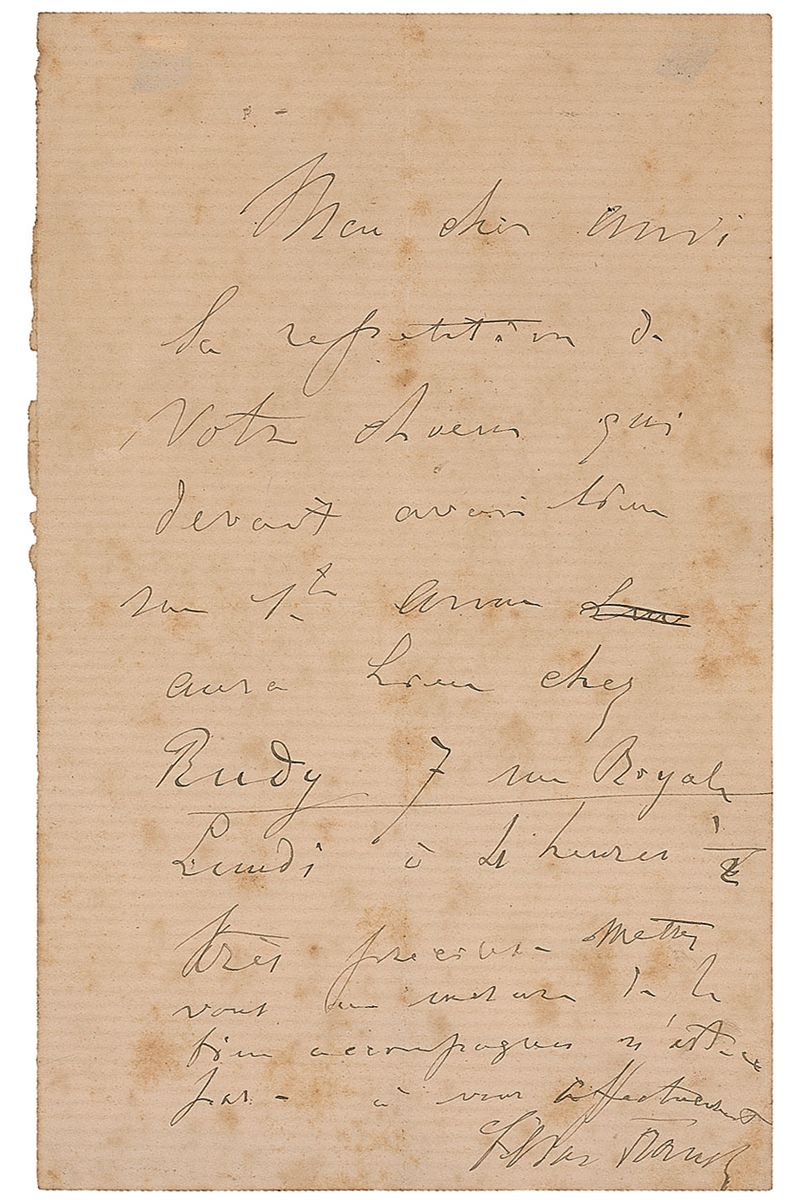 Mon cher ami
la repetition de
Votre choeur qui
devait avoir lieu
rue Ste Anne
aura lieu chez
Rudy 7 rue Royale
Lundi à 4 heures 1/2
très precises Mettez
vous en mesure de le
bien accompagner n'est-ce
pas - à vous affectueusement
César Franck